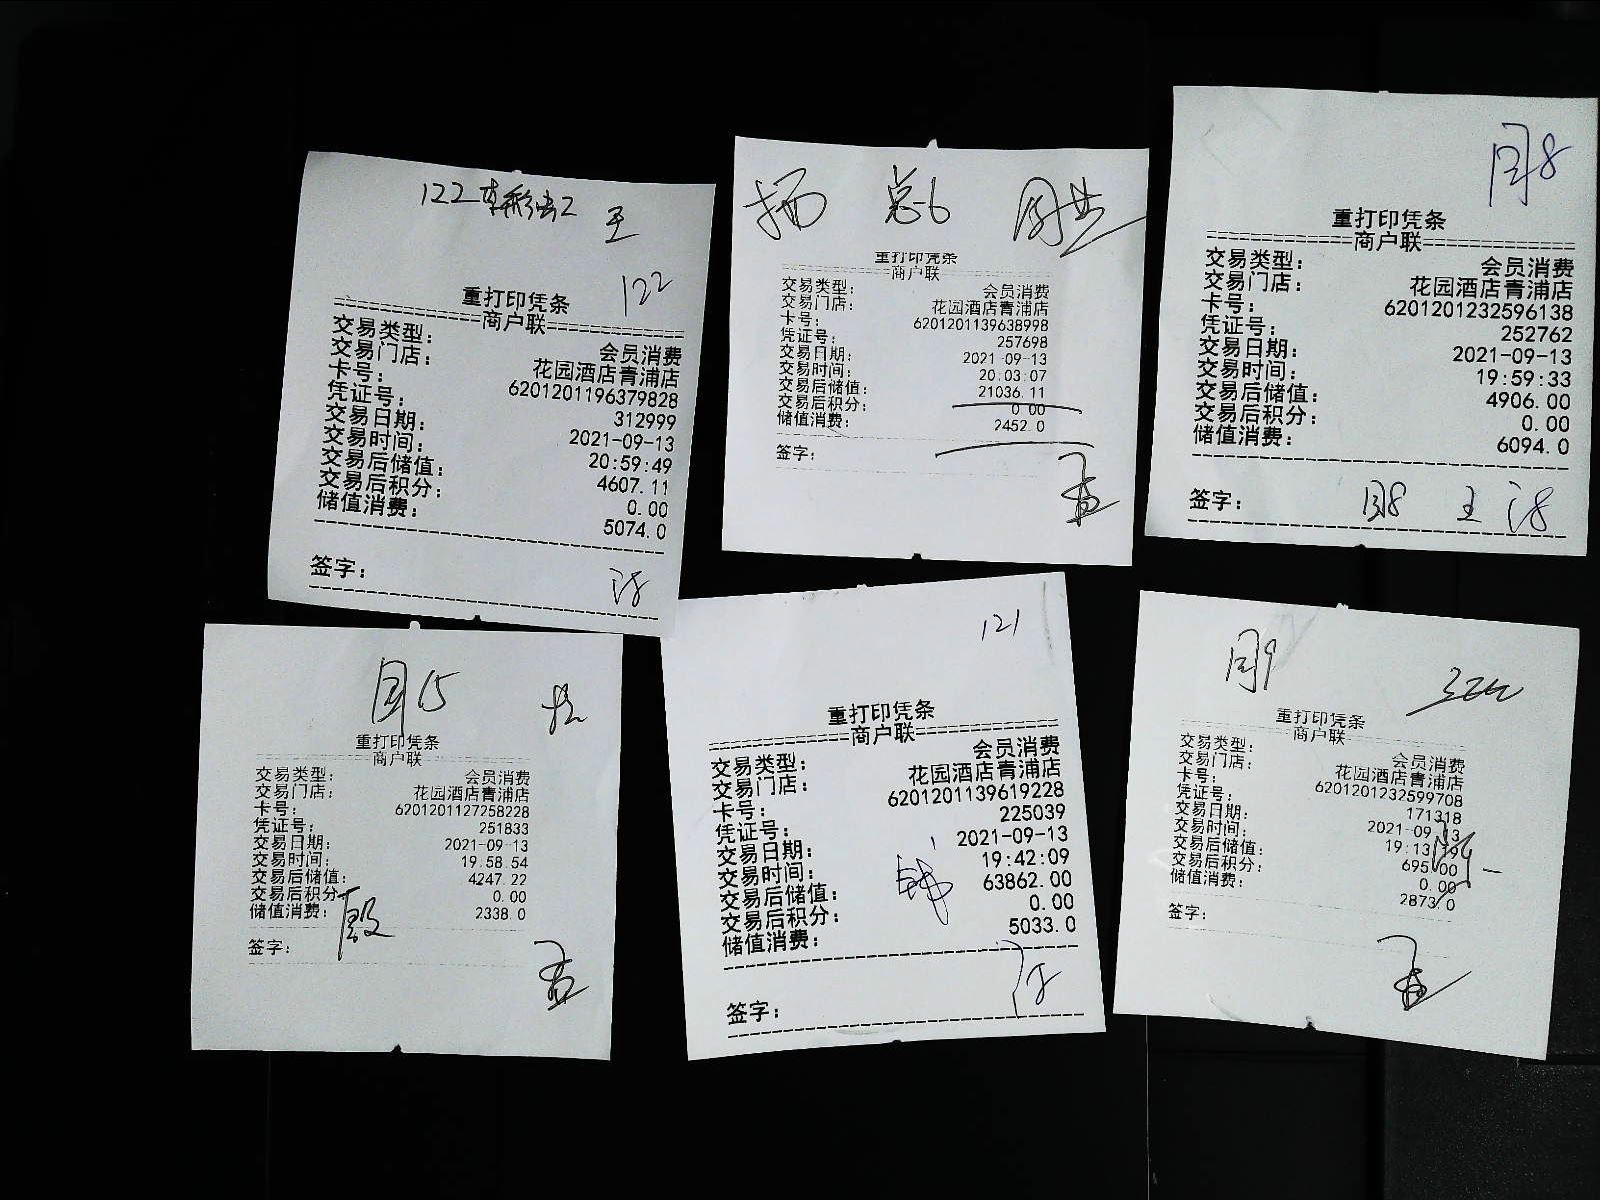 122
王
122
重打印凭条
商户联
交易类型: 会员消费
交易门店: 花园酒店青浦店
卡号: 6201201196379828
凭证号: 312999
交易日期: 2021-09-13
交易时间: 20:59:49
交易后储值: 4607.11
交易后积分: 0.00
储值消费: 5074.0
签字:
杨 总6
重打印凭条
商户联
交易类型: 会员消费
交易门店: 花园酒店青浦店
卡号: 6201201139638998
凭证号: 257698
交易日期: 2021-09-13
交易时间: 20:03:07
交易后储值: 21036.11
交易后积分: 0.00
储值消费: 2452.0
签字:
孟
周8
重打印凭条
商户联
交易类型: 会员消费
交易门店: 花园酒店青浦店
卡号: 6201201232596138
凭证号: 252762
交易日期: 2021-09-13
交易时间: 19:59:33
交易后储值: 4906.00
交易后积分: 0.00
储值消费: 6094.0
签字: 周8 王
周15
重打印凭条
商户联
交易类型: 会员消费
交易门店: 花园酒店青浦店
卡号: 6201201127258228
凭证号: 251833
交易日期: 2021-09-13
交易时间: 19:58:54
交易后储值: 4247.22
交易后积分: 0.00
储值消费: 2338.0
殷
签字:
孟
121
重打印凭条
商户联
交易类型: 会员消费
交易门店: 花园酒店青浦店
卡号: 6201201139619228
凭证号: 225039
交易日期: 2021-09-13
交易时间: 19:42:09
交易后储值: 63862.00
交易后积分: 0.00
储值消费: 5033.0
签字:
周9
重打印凭条
商户联
交易类型: 会员消费
交易门店: 花园酒店青浦店
卡号: 6201201232599708
凭证号: 171318
交易日期: 2021-09-13
交易时间: 19:13:19
交易后储值: 695.00
交易后积分: 0.00
储值消费: 2873.0
签字:
孟